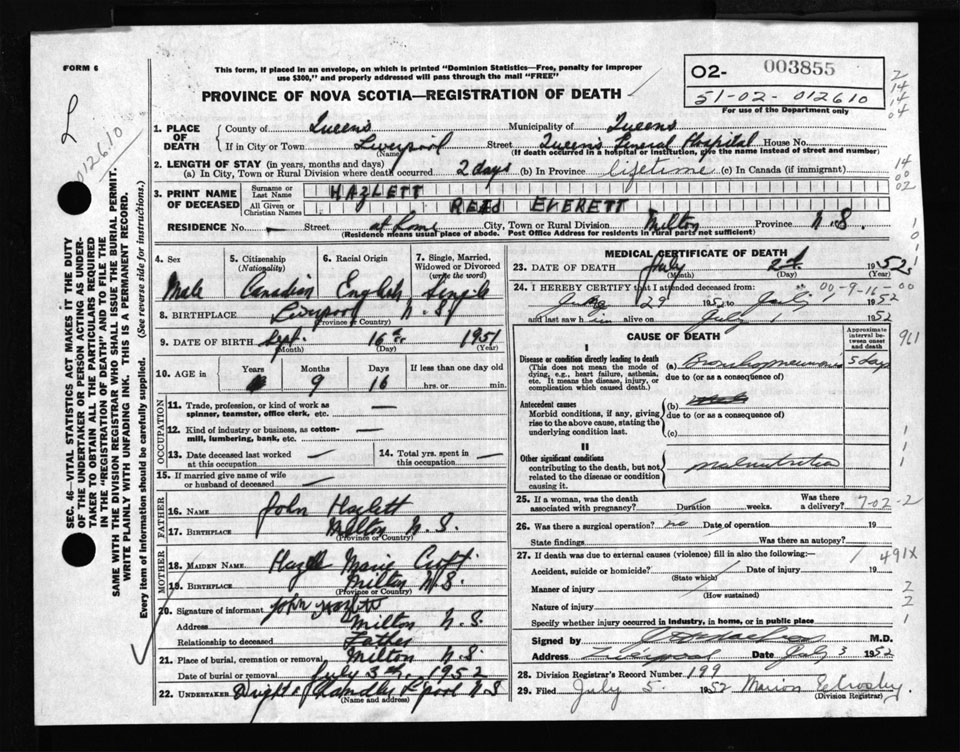 FORM 6
This form, if placed in an envelope, on which is printed "Dominion Statistics—Free, penalty for improper
use $300," and properly addressed will pass through the mail "FREE"
PROVINCE OF NOVA SCOTIA—REGISTRATION OF DEATH
02- 003855
51-02-012610
For use of the Department only
012610
SEC. 46—VITAL STATISTICS ACT MAKES IT THE DUTY
OF THE UNDERTAKER OR PERSON ACTING AS UNDER-
TAKER TO OBTAIN ALL THE PARTICULARS REQUIRED
IN THE "REGISTRATION OF DEATH" AND TO FILE THE
SAME WITH THE DIVISION REGISTRAR WHO SHALL ISSUE THE BURIAL PERMIT.
WRITE PLAINLY WITH UNFADING INK. THIS IS A PERMANENT RECORD.
Every item of information should be carefully supplied. (See reverse side for instructions.)
1. PLACE OF DEATH County of Queens Municipality of Queens
If in City or Town Liverpool Street Queen's General Hospital House No.
(Name) (If death occurred in a hospital or institution, give the name instead of street and number)
2. LENGTH OF STAY (in years, months and days)
(a) In City, Town or Rural Division where death occurred 2 days (b) In Province lifetime (c) In Canada (if immigrant)
3. PRINT NAME OF DECEASED Surname or Last Name HAZLETT
All Given or Christian Names REED EVERETT
RESIDENCE No. — Street at home City, Town or Rural Division Milton Province N.S.
(Residence means usual place of abode. Post Office Address for residents in rural parts not sufficient)
4. Sex Male
5. Citizenship (Nationality) Canadian
6. Racial Origin English
7. Single, Married, Widowed or Divorced (write the word) Single
8. BIRTHPLACE Liverpool N.S.
(Province or Country)
9. DATE OF BIRTH Sept. 16th 1951
(Month) (Day) (Year)
10. AGE in Years Months 9 Days 16 If less than one day old
hrs. or min.
OCCUPATION
11. Trade, profession, or kind of work as spinner, teamster, office clerk, etc. —
12. Kind of industry or business, as cotton-mill, lumbering, bank, etc. —
13. Date deceased last worked at this occupation —
14. Total yrs. spent in this occupation —
15. If married give name of wife or husband of deceased —
FATHER
16. NAME John Hazlett
17. BIRTHPLACE Milton N.S.
(Province or Country)
MOTHER
18. MAIDEN NAME Hazel Marie Croft
19. BIRTHPLACE Milton N.S.
(Province or Country)
20. Signature of informant John Hazlett
Address Milton N.S.
Relationship to deceased Father
21. Place of burial, cremation or removal Milton N.S.
Date of burial or removal July 3rd, 1952
22. UNDERTAKER Dwight L'pool N.S
(Name and address)
MEDICAL CERTIFICATE OF DEATH
23. DATE OF DEATH July 2nd 1952
(Month) (Day) (Year)
24. I HEREBY CERTIFY that I attended deceased from: 00-9-16-00
June 29 1952 to July 1 1952
and last saw him alive on July 1 1952
CAUSE OF DEATH
Approximate interval between onset and death
I
Disease or condition directly leading to death
(This does not mean the mode of dying, e.g., heart failure, asthenia, etc. It means the disease, injury, or complication which caused death.)
(a) Bronchopneumonia 5 days
due to (or as a consequence of)
Antecedent causes
Morbid conditions, if any, giving rise to the above cause, stating the underlying condition last.
(b)
due to (or as a consequence of)
(c)
II
Other significant conditions
contributing to the death, but not related to the disease or condition causing it.
malnutrition
25. If a woman, was the death associated with pregnancy? Duration weeks. Was there a delivery? 7-02-2
26. Was there a surgical operation? no Date of operation 19
State findings Was there an autopsy?
27. If death was due to external causes (violence) fill in also the following:— 491X
Accident, suicide or homicide? Date of injury 19
(State which)
Manner of injury
(How sustained)
Nature of injury
Specify whether injury occurred in industry, in home, or in public place
Signed by M.D.
Address Liverpool Date July 3 1952
28. Division Registrar's Record Number 199
29. Filed July 5 1952 Marion E. Crosby
(Division Registrar)